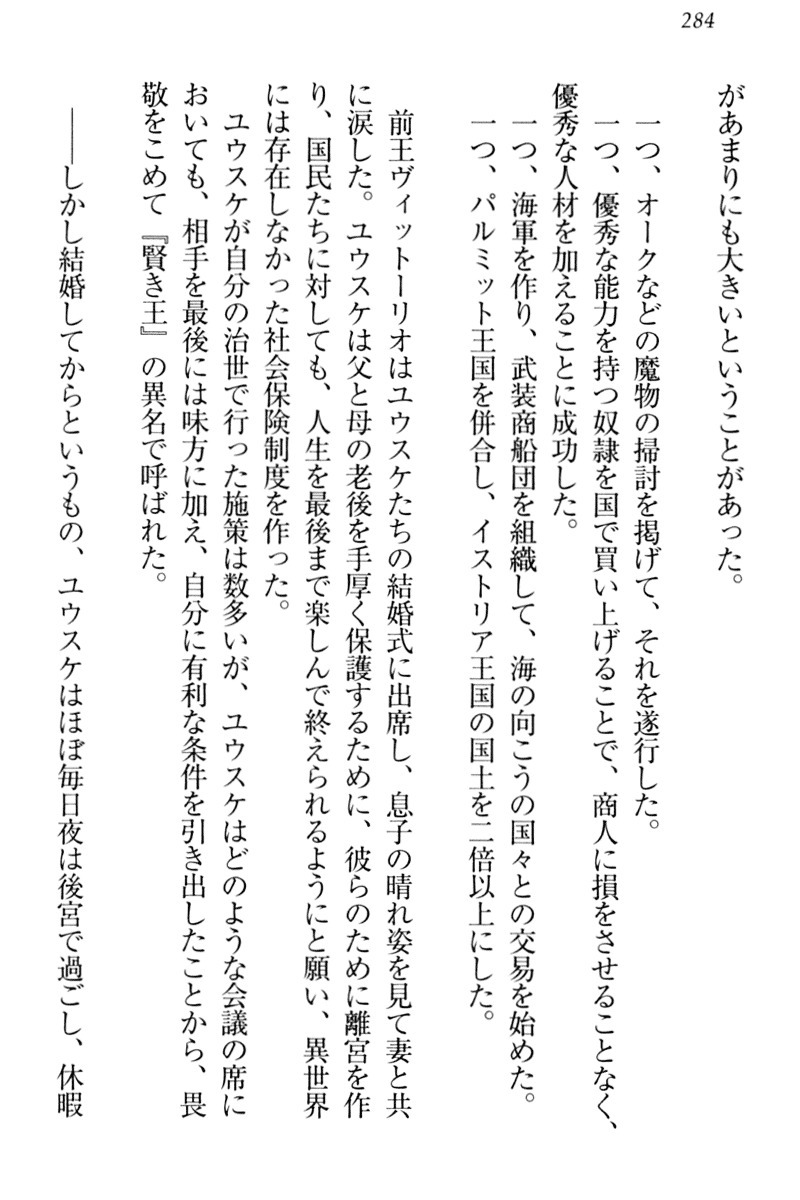 284
があまりにも大きいということがあった。
一つ、オークなどの魔物の掃討を掲げて、それを遂行した。
一つ、優秀な能力を持つ奴隷を国で買い上げることで、商人に損をさせることなく、
優秀な人材を加えることに成功した。
一つ、海軍を作り、武装商船団を組織して、海の向こうの国々との交易を始めた。
一つ、パルミット王国を併合し、イストリア王国の国土を二倍以上にした。
前王ヴィットーリオはユウスケたちの結婚式に出席し、息子の晴れ姿を見て妻と共
に涙した。ユウスケは父と母の老後を手厚く保護するために、彼らのために離宮を作
り、国民たちに対しても、人生を最後まで楽しんで終えられるようにと願い、異世界
には存在しなかった社会保険制度を作った。
ユウスケが自分の治世で行った施策は数多いが、ユウスケはどのような会議の席に
おいても、相手を最後には味方に加え、自分に有利な条件を引き出したことから、畏
敬をこめて『賢き王』の異名で呼ばれた。
――しかし結婚してからというもの、ユウスケはほぼ毎日夜は後宮で過ごし、休暇